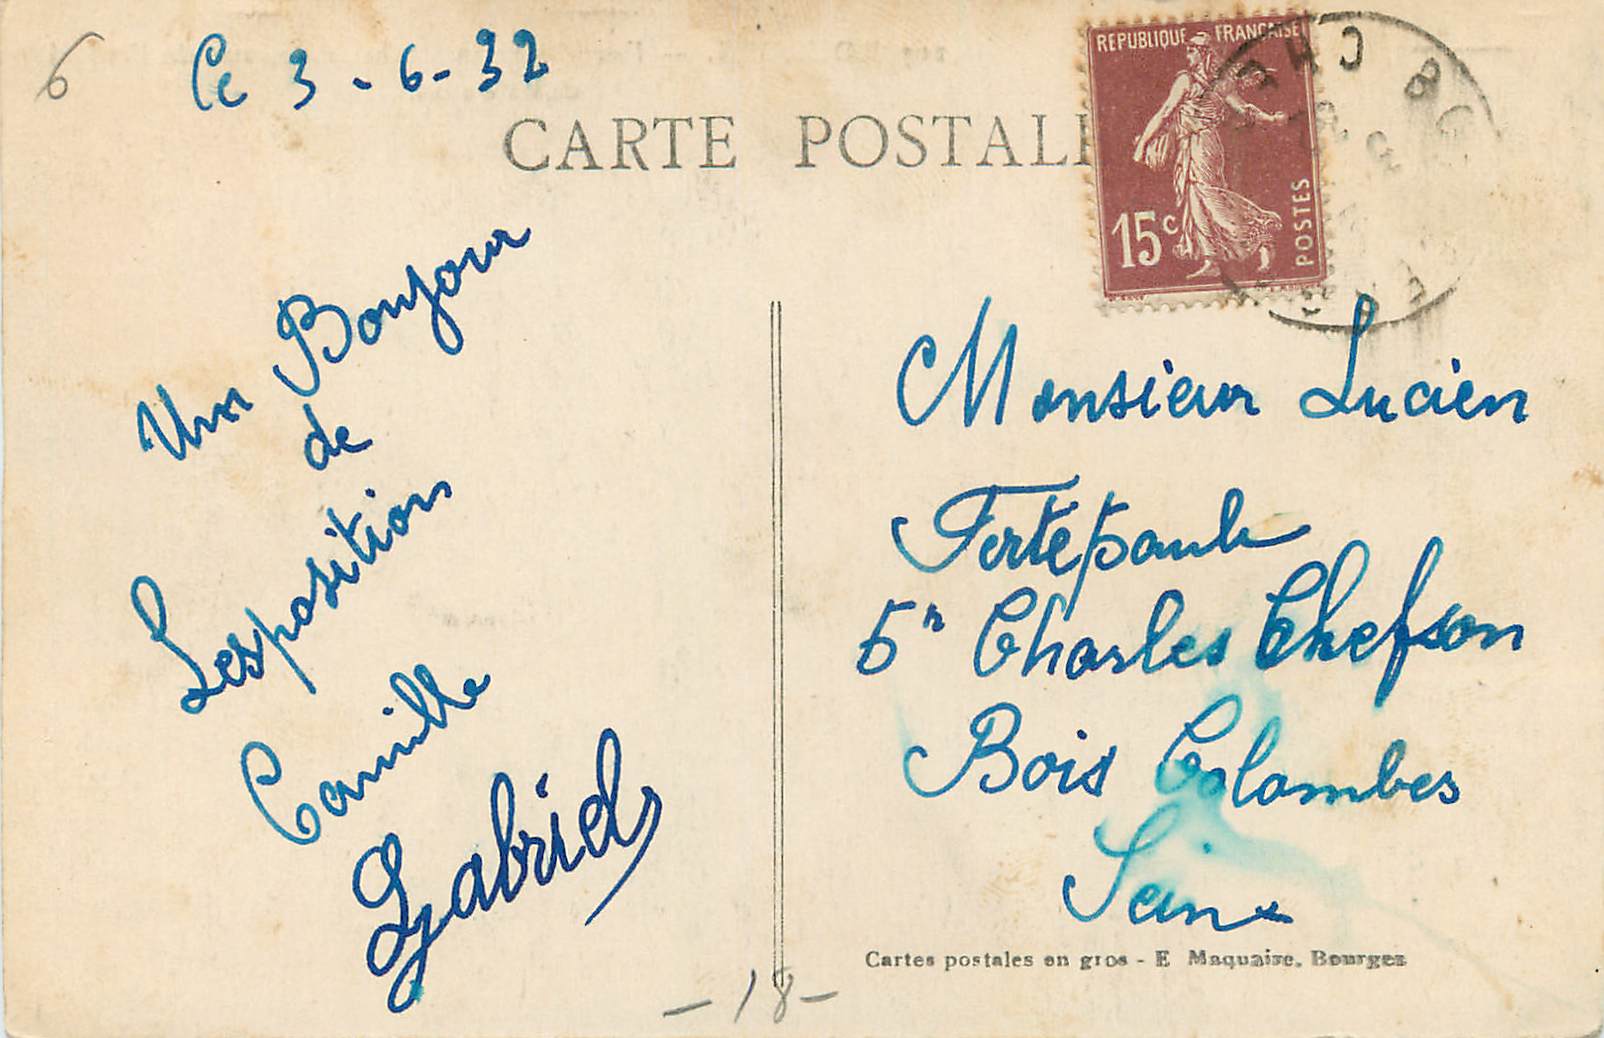 6
Ce 3-6-32
CARTE POSTALE
REPUBLIQUE FRANÇAISE
15c
POSTES
Un Bonjour
de
Lesposition
Camille
Gabriel
Monsieur Lucien
5 r Charles Chefson
Bois Colombes
Seine
Cartes postales en gros - E Maquaire, Bourges
- 18 -